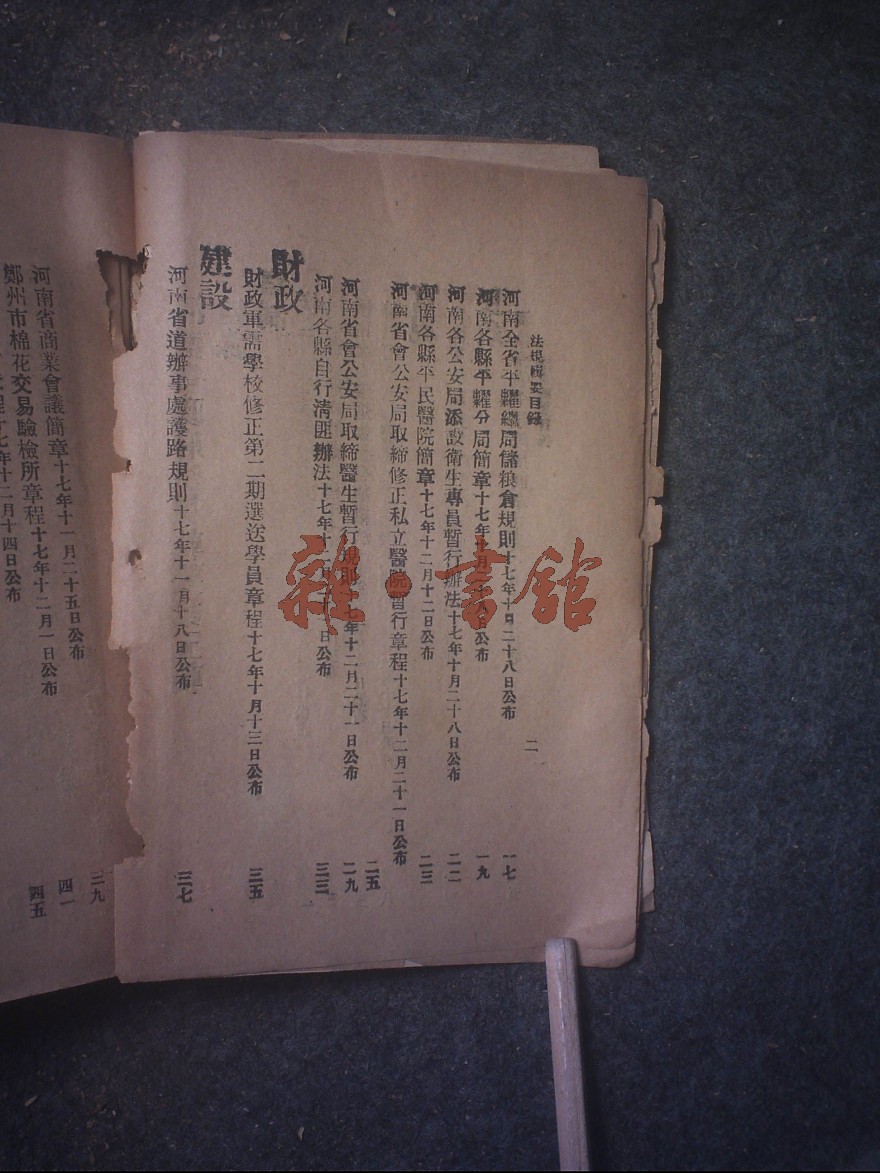 法規輯要目錄
二
河南全省平糶總局儲粮倉規則十七年十月二十八日公布 一七
河南各縣平糶分局簡章十七年十月二十八日公布 一九
河南各公安局添設衛生專員暫行辦法十七年十月二十八日公布 二二
河南各縣平民醫院簡章十七年十二月十二日公布 二三
河南省會公安局取締修正私立醫院暫行章程十七年十二月二十一日公布 二五
河南省會公安局取締醫生暫行規則 年十二月二十一日公布 二九
河南各縣自行清匪辦法十七年十 日公布 三三
財政
財政軍需學校修正第二期選送學員章程十七年十月十三日公布 三五
建設
河南省道辦事處護路規則十七年十一月十八日公布 三七
三九
河南省商業會議簡章十七年十一月二十五日公布 四一
鄭州市棉花交易驗檢所章程十七年十二月一日公布 四五
程十七年十二月十四日公布
雜·書館